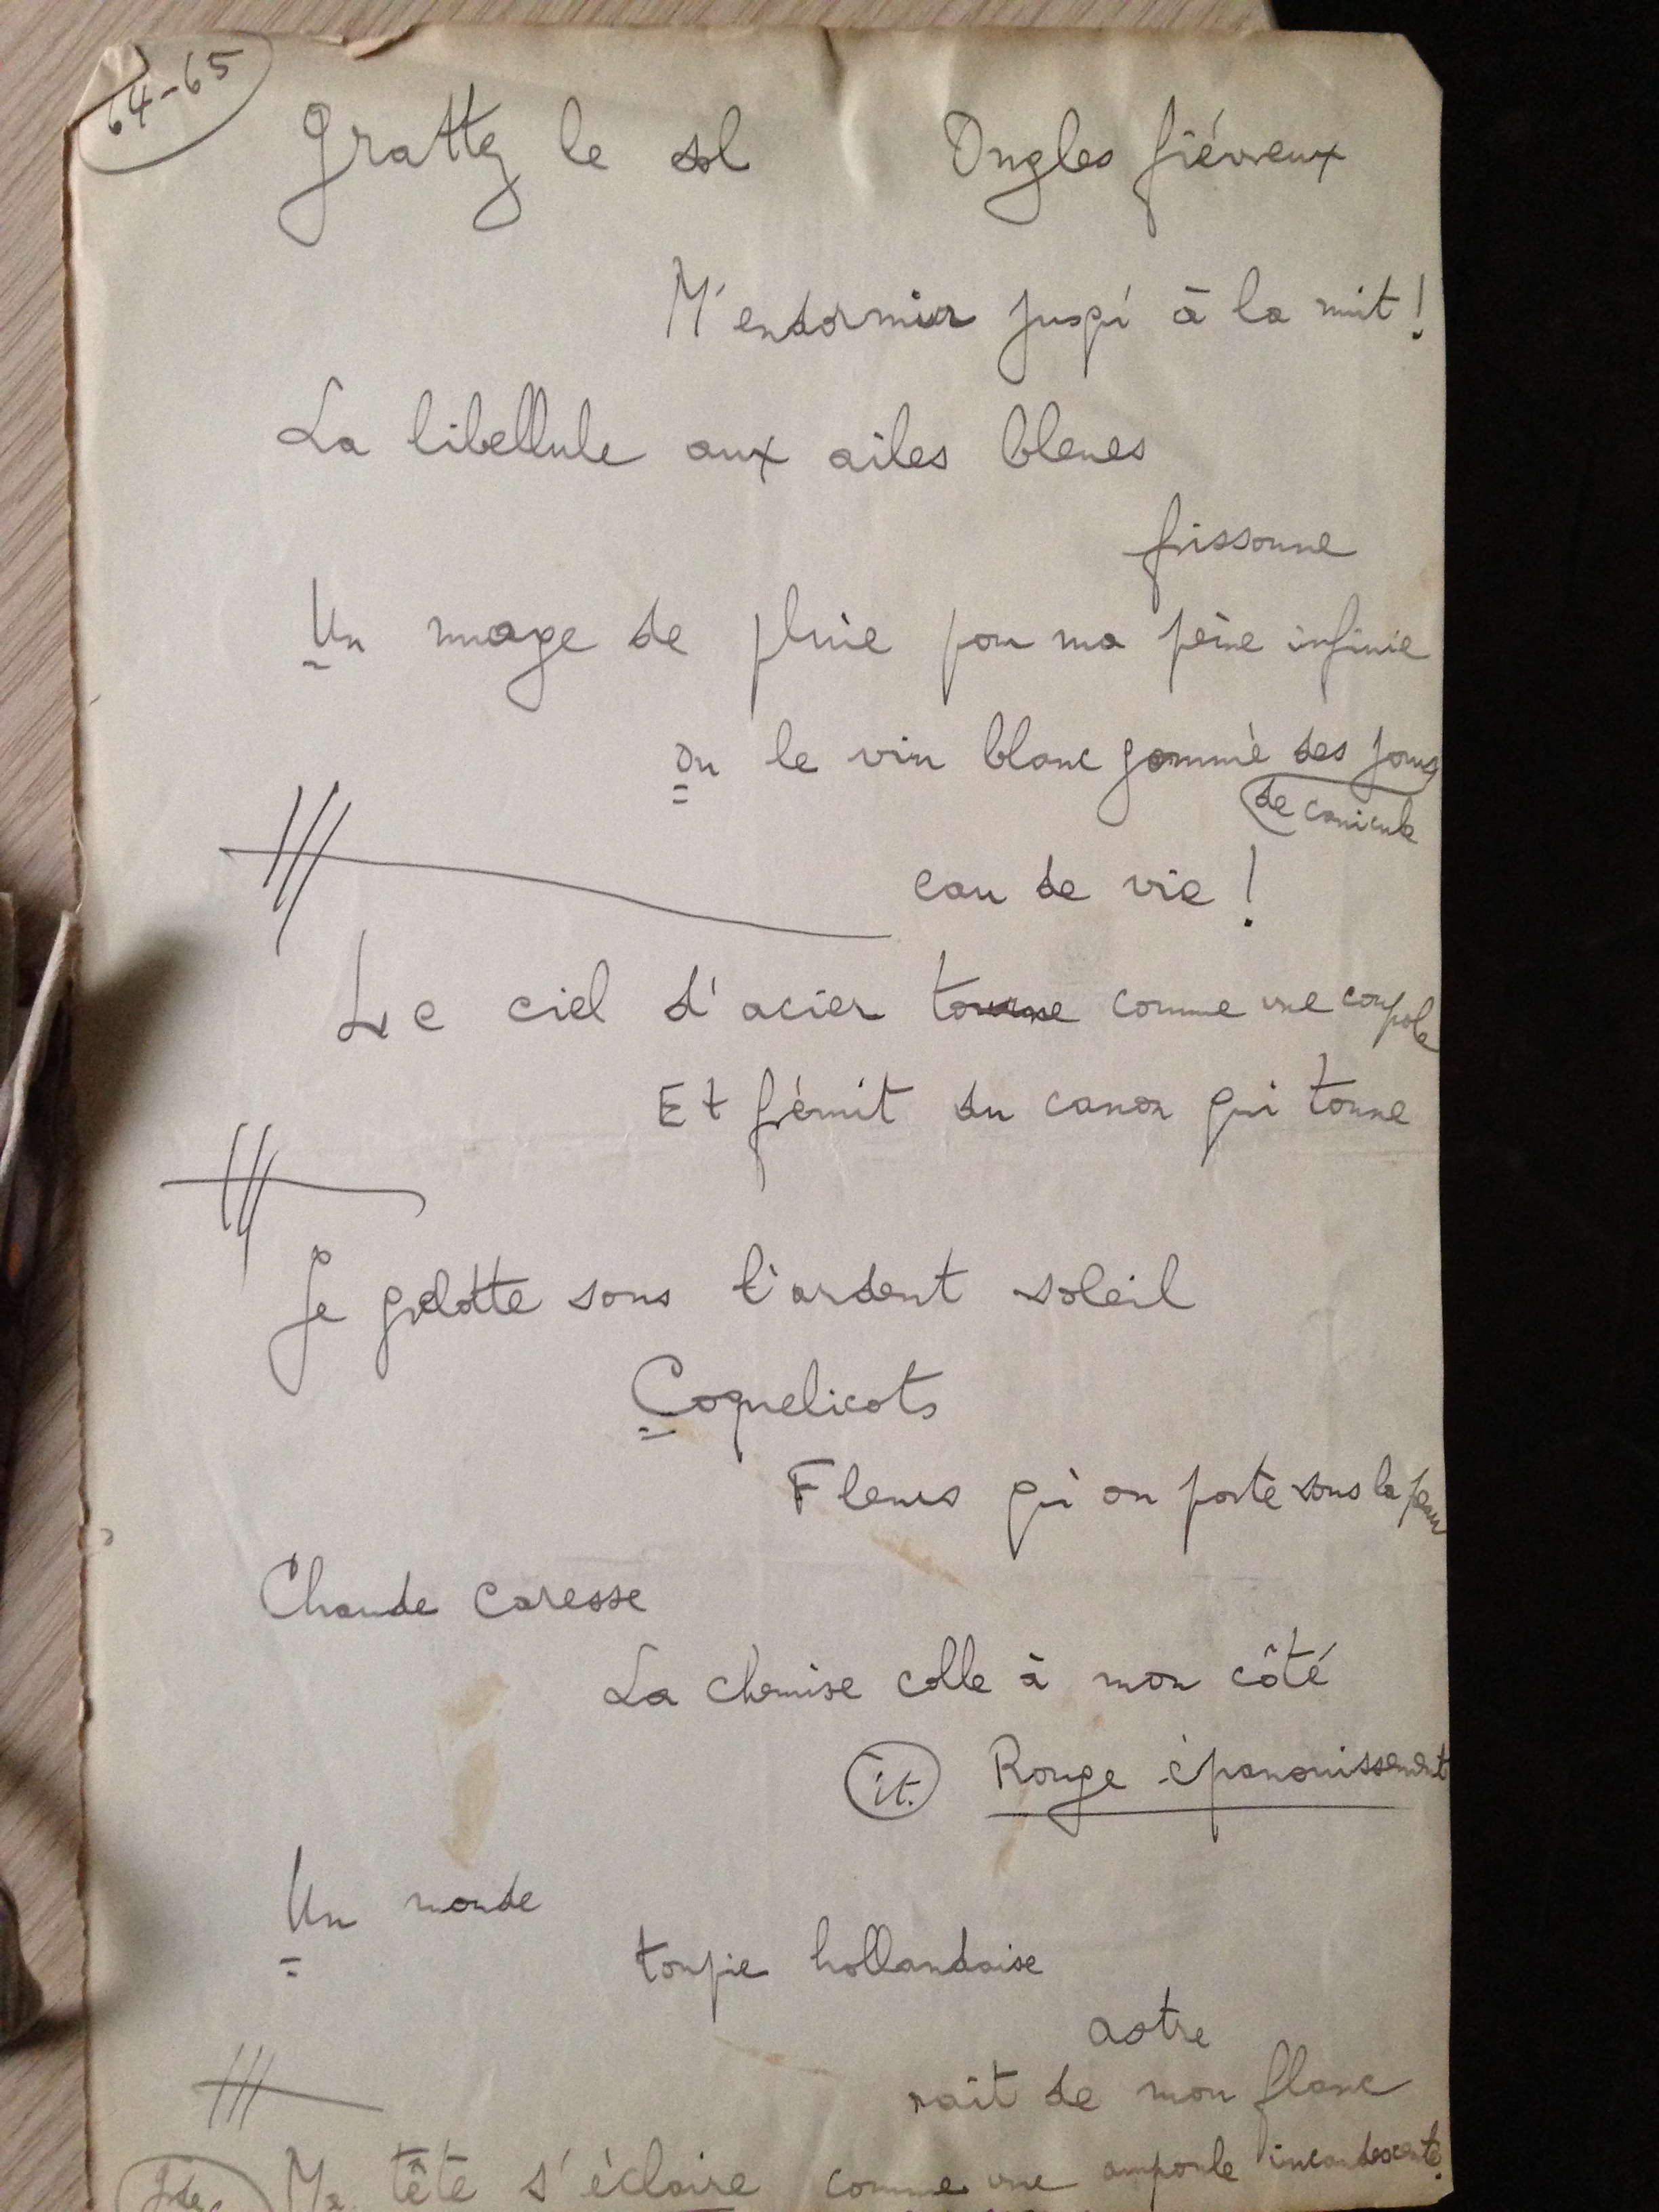 64-65
Grattez le sol Ongles fiévreux
M'endormir jusqu'à la nuit!
La libellule aux ailes bleues
frissonne
Un nuage de pluie pour ma peine infinie
ou le vin blanc gommé des jours
de canicule
eau de vie!
Le ciel d'acier tourne comme une coupole
Et frémit du canon qui tonne
Je grelotte sous l'ardent soleil
Coquelicots
Fleurs qu'on porte sous la peau
Chaude Caresse
La chemise colle à mon côté
it. Rouge épanouissement
Un monde
toupie hollandaise
astre
naît de mon flanc
Ma tête s'éclaire comme une ampoule incandescente.